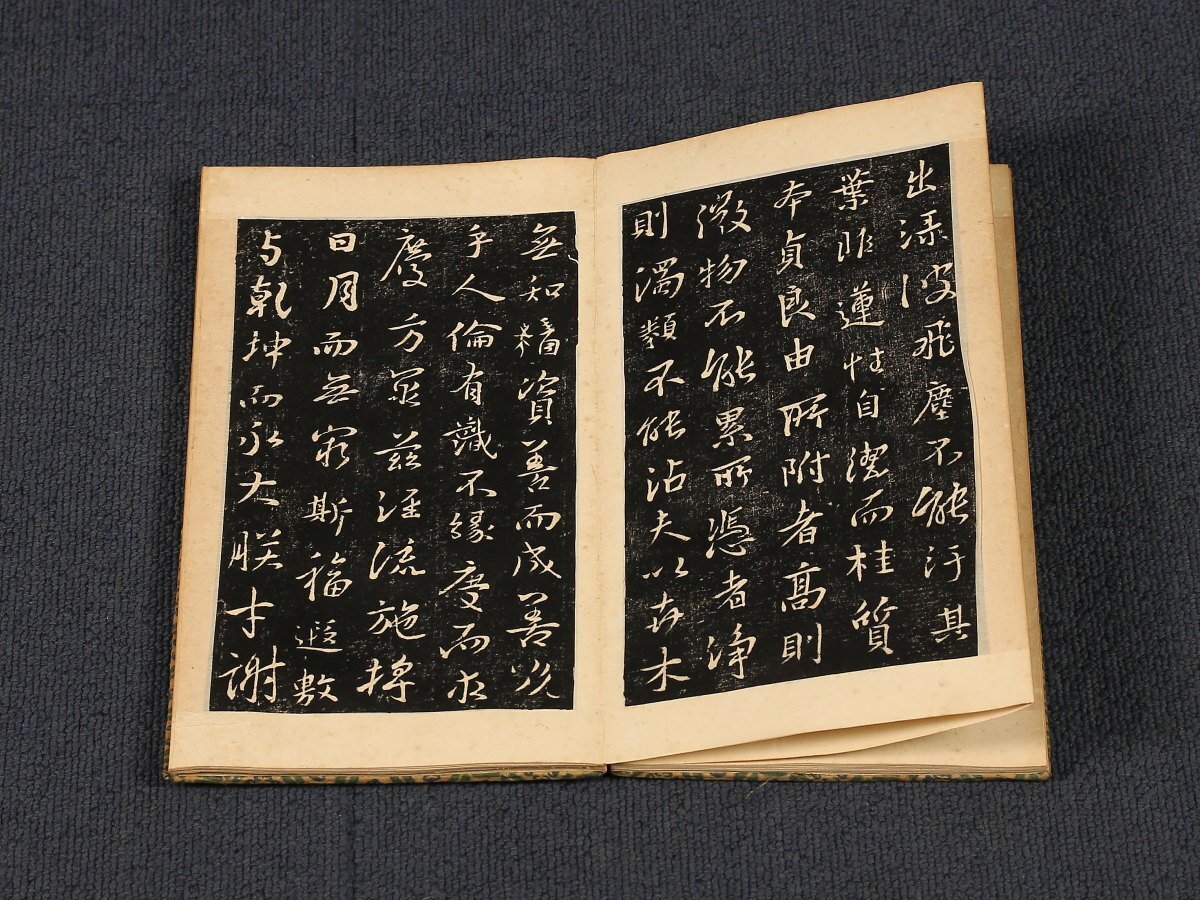 出淥波飛塵不能汙其
葉非蓮性自潔而桂質
本貞良由所附者高則
微物不能累所憑者淨
則濁類不能沾夫以卉木
無知猶資善而成善況
乎人倫有識不緣慶而求
慶方冀茲經流施將
日月而無窮斯福遐敷
与乾坤而永大朕才謝